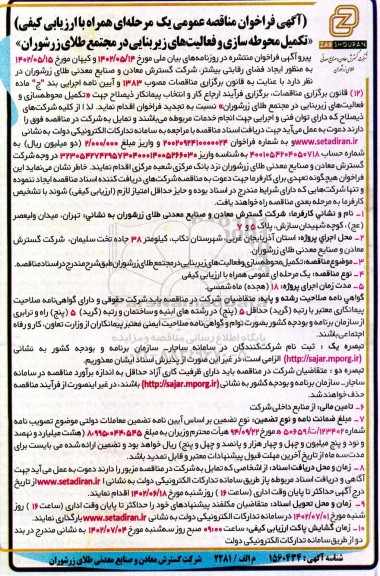 (آگهی فراخوان مناقصه عمومی یک مرحله‌ای همراه با ارزیابی کیفی)
«تکمیل محوطه سازی و فعالیت‌های زیربنایی در مجتمع طلای زرشوران»
ZARSHOURAN
پیرو آگهی فراخوان منتشره در روزنامه‌های بیان ملی مورخ ۱۴۰۲/۰۵/۱۴ و کیهان مورخ ۱۴۰۲/۰۵/۱۵
به منظور ایجاد فضای رقابتی بیشتر، شرکت گسترش معادن و صنایع معدنی طلای زرشوران در
نظر دارد با عنایت به قانون برگزاری مناقصات مصوب ۱۳۸۳ و آیین نامه اجرایی بند "ج" ماده
(۱۲) قانون برگزاری مناقصات، برگزاری فرآیند ارجاع کار و انتخاب پیمانکار ذیصلاح جهت «تکمیل محوطه‌سازی و
فعالیت‌های زیربنایی در مجتمع طلای زرشوران» نسبت به تجدید فراخوان اقدام نماید. لذا از کلیه شرکت‌های
ذیصلاح که دارای توان فنی و اجرایی جهت انجام خدمات مربوطه می‌باشند و تمایل به شرکت در مناقصه فوق را
دارند دعوت به عمل می‌آید جهت دریافت اسناد مناقصه با مراجعه به سامانه تدارکات الکترونیکی دولت به نشانی
www.setadiran.ir به شماره فراخوان ۲۰۰۲۰۹۲۴۱۰۰۰۰۰۲۴ و واریز مبلغ ۲/۰۰۰/۰۰۰ (دو میلیون ریال) به
شماره حساب ۴۰۰۱۰۵۴۲۰۴۰۵۰۷۱۸ به شناسه واریز در وجه شرکت
گسترش معادن و صنایع معدنی طلای زرشوران نزد بانک مرکزی شعبه مرکزی اقدام نمایند. خاطر نشان می‌نماید این
فراخوان هیچگونه تعهدی برای کارفرما جهت دعوت به مناقصه شرکت‌های دریافت کننده اسناد مناقصه ایجاد ننموده
و تنها شرکت‌هایی که دارای شرایط مندرج در اسناد بوده و حایز حداقل امتیاز لازم (ارزیابی کیفی) شوند با تشخیص
کارفرما به مرحله بعدی مناقصه راه خواهند یافت.
۱- نام و نشانی کارفرما: شرکت گسترش معادن و صنایع معدنی طلای زرشوران به نشانی؛ تهران، میدان ولیعصر
(عج)، کوچه شهیدان سازش، پلاک ۵ و ۷
۲- محل اجرای پروژه: استان آذربایجان غربی، شهرستان تکاب، کیلومتر ۳۸ جاده تخت سلیمان، شرکت گسترش
معادن و صنایع معدنی طلای زرشوران
۳- موضوع مناقصه: تکمیل محوطه‌سازی و فعالیت‌های زیربنایی در مجتمع طلای زرشوران طبق شرح مندرج در اسناد مناقصه.
۴- نوع مناقصه: یک مرحله ای عمومی همراه با ارزیابی کیفی
۵- مدت زمان اجرای پروژه: ۱۸ (هجده) ماه شمسی.
گواهی نامه صلاحیت رشته و پایه: متقاضیان شرکت در مناقصه باید شرکت حقوقی و دارای گواهی‌نامه صلاحیت
پیمانکاری معتبر با رتبه (گرید) حداقل ۵ (پنج) در رشته های ابنیه و ساختمان و رتبه (گرید) ۵ (پنج) راه و ترابری
از سازمان برنامه و بودجه کشور بصورت توام و گواهی‌نامه صلاحیت ایمنی معتبر پیمانکاران از وزارت تعاون، کار و رفاه
اجتماعی باشند.
تبصره یک : ثبت نام شرکت‌کنندگان در سامانه ساجار- سازمان برنامه و بودجه کشور به نشانی
(http://sajar.mporg.ir) الزامی است در غیر این صورت از پذیرش اسناد ایشان معذوریم.
تبصره دو : متقاضیان شرکت در مناقصه باید دارای ظرفیت کاری آزاد حداقل به اندازه برآورد مناقصه در سامانه
ساجار- سازمان برنامه و بودجه کشور به نشانی (http://sajar.mporg.ir) باشند، در غیر اینصورت از فرآیند مناقصه
حذف خواهند شد.
۶- تامین مالی: از منابع داخلی شرکت
۷- مبلغ ضمانت نامه و نوع تضمین: نوع تضمین بر اساس آیین نامه تضمین معاملات دولتی موضوع تصویب نامه
شماره ۱۲۳۴۰۲/ت۵۰۶۵۹ هـ مورخ ۹۴/۰۹/۲۲ هیأت محترم وزیران به مبلغ ۸،۹۹۵،۰۴۴،۵۴۵ (هشت میلیارد و نهصد
و نود و پنج میلیون و چهل و چهار هزار و پانصد و چهل و پنج) ریال خواهد بود و تضمین ارائه شده می بایست برای
مدت سه ماه از تاریخ آخرین مهلت قبول پیشنهادات معتبر و قابل تمدید باشد.
۸- زمان و محل دریافت اسناد: از اشخاصی که تمایل به شرکت در مناقصه مزبور را دارند دعوت به عمل می آید جهت
آگاهی و دریافت اسناد مربوطه پاز طریق سامانه تدارکات الکترونیکی دولت به نشانی www.setadiran.ir از تاریخ
درج آگهی حداکثر تا پایان وقت اداری (ساعت ۱۶) روز شنبه مورخ ۱۴۰۲/۰۶/۱۸ اقدام نمایند.
۹- زمان و محل تحویل اسناد: متقاضیان مکلفند پیشنهادهای خود را حداکثر تا پایان وقت اداری (ساعت ۱۶) روز
شنبه مورخ ۱۴۰۲/۰۷/۰۱ سامانه تدارکات الکترونیکی دولت به نشانی www.setadiran.ir بارگذاری نمایند.
۱۰- زمان گشایش پاکت ارزیابی کیفی: ساعت ۰۹:۰۰ صبح روز سه‌شنبه مورخ ۱۴۰۲/۰۷/۰۴ به نشانی مندرج در بند
دو از طریق سامانه تدارکات الکترونیکی دولت
شناسه آگهی: ۱۵۶۰۴۳۴ م الف / ۲۲۸۱ شرکت گسترش معادن و صنایع معدنی طلای زرشوران